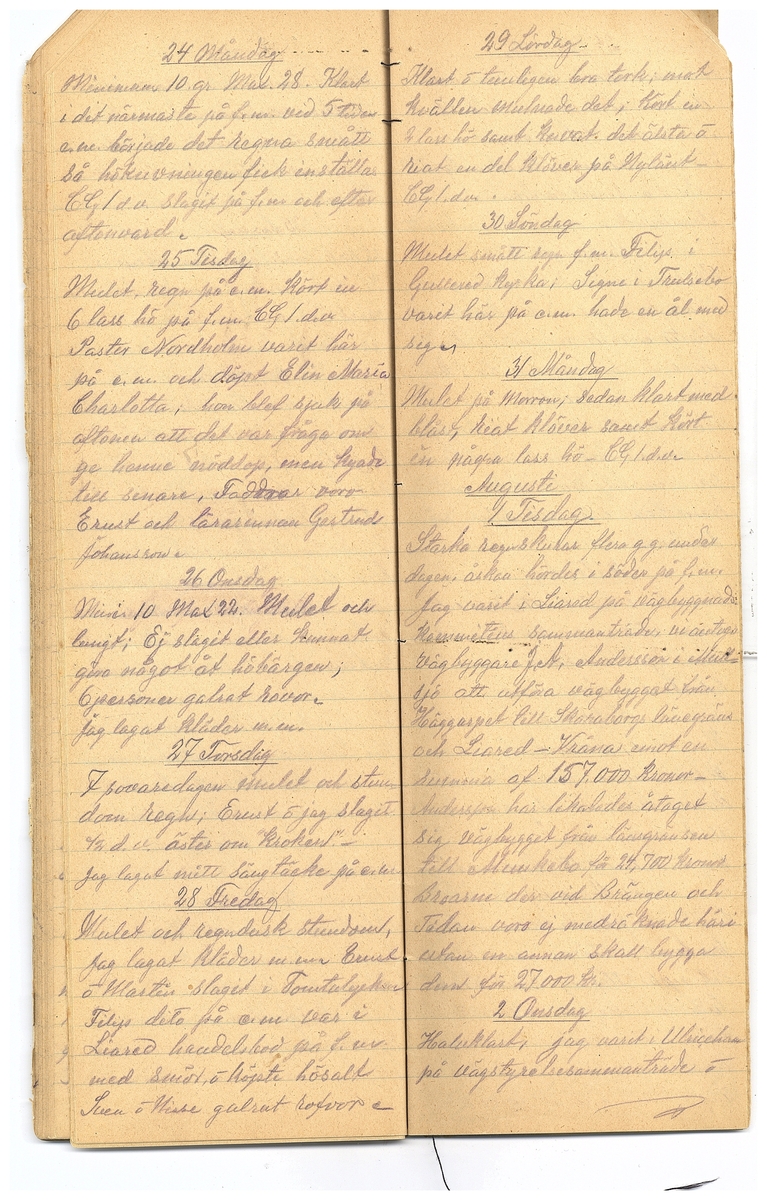 24 Måndag
Minimum 10 gr Max 28. Klart
i det närmaste på f.m. vid 5 tiden
e.m. började det regna smått
så hökuvningen fick inställas
CG 1 d.v. slagit på f.m och efter
aftonvard.
25 Tisdag
Mulet, regn på e.m. kört in
6 lass hö på f.m. CG 1. d.v
Pastor Nordholm varit här
på e.m. och döpt Elin Maria
Charlotta; hon blef sjuk på
aftonen att det var fråga om
ge henne nöddop, men hyade
till senare. Faddrar voro
Ernst och lärarinnan Gertrud
Johansson.
26 Onsdag
Mini 10 Max 22. Mulet och
lungt; Ej slagit eller kunnat
göra något åt höbärgen;
6 personer galrat rovor.
Jag lagat kläder m.m.
27 Torsdag
7 sovaredagen mulet och stun-
dom regn; Ernst o jag slagit
1/2 d.v. öster om "kroken" -
Jag lagat mitt sängtäcke på e.m
28 Fredag
Mulet och regndusk stundom,
Jag lagat kläder m.m Ernst
o Mårten slaget i Tomtalyckan
Filip dito på e.m. var i
Liared handelsbod på f.m
med smör, o köpte hösalt
Sven o Nisse galrat rofvor
29 Lördag
Klart o temligen bra tork; mot
kvällen mulnade det; kört in
2 lass hö samt kuvat det älsta o
kiat en del klöver på Nylänt -
CG 1. d.v.
30 Söndag
Mulet smått regn f.m. Filip i
Gullered kyrka; Signe i Trulsebo
varit här på e.m. hade en ål med
seg
31 Måndag
Mulet på morron; sedan klart med
blåst, kiat klöver samt kört
in några lass hö - CG 1. d.v.
Augusti
1 Tisdag
Starka regnskurar flera g.g. under
dagen, åskan hördes i söder på f.m.
Jag varit i Liared på vägbyggnads-
kommiténs sammanträde, vi antogo
vägbyggare J.A. Andersson i Mull-
sjö att utföra vägbygget från
Häggarpet till Skaraborgs länsgräns
och Liared - Kråna emot en
summa af 157.000 kronor -
Andersson har likaledes åtaget
sig vägbygget från länsgränsen
till Munkebo för 24,700 kronor
Broarne der vid Brängen och
Tidan voro ej medräknade häri
utan en annan skall bygga
dem för 27000 kr.
2 Onsdag
Halvklart; jag varit i Ulricehamn
på vägstyrelsesammanträde o